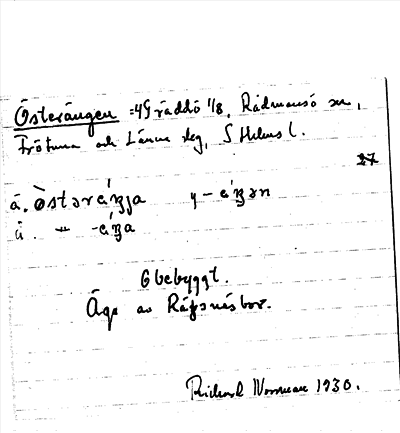 Österängen = Gräddö 1/8, Rådmansö sn,
Frötuna och Länna skg, Sthlms l.
27
ä. òstəréŋja y - éŋən
ü. " -éŋa
Obebyggt.
Äga av Räfsnäsbor.
Richard Norrman 1930.